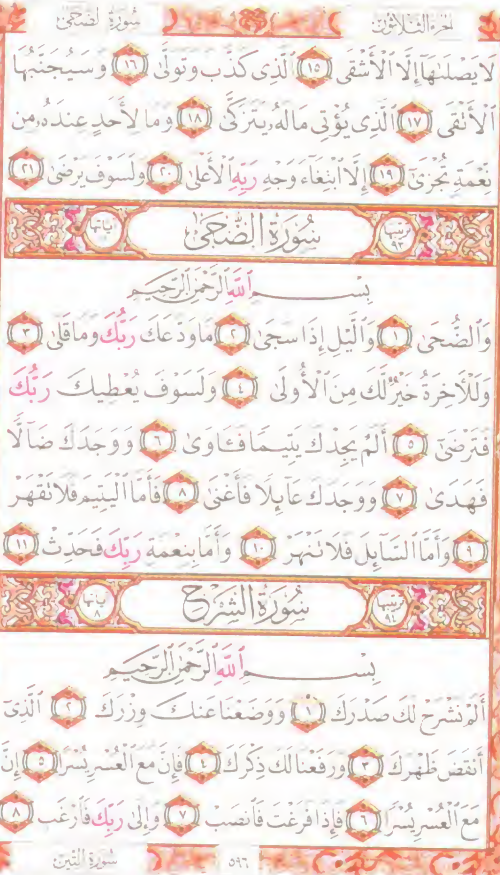 الجزء الثلاثون سورة الضحى
لَا يَصْلَىٰهَآ إِلَّا ٱلْأَشْقَى ١٥ ٱلَّذِى كَذَّبَ وَتَوَلَّىٰ ١٦ وَسَيُجَنَّبُهَا
ٱلْأَتْقَى ١٧ ٱلَّذِى يُؤْتِى مَالَهُۥ يَتَزَكَّىٰ ١٨ وَمَا لِأَحَدٍ عِندَهُۥ مِن
نِّعْمَةٍ تُجْزَىٰٓ ١٩ إِلَّا ٱبْتِغَآءَ وَجْهِ رَبِّهِ ٱلْأَعْلَىٰ ٢٠ وَلَسَوْفَ يَرْضَىٰ ٢١
ترتيبها ٩٣ سُورَةُ الضُّحَىٰ آياتها
بِسْمِ ٱللَّهِ ٱلرَّحْمَٰنِ ٱلرَّحِيمِ
وَٱلضُّحَىٰ ١ وَٱلَّيْلِ إِذَا سَجَىٰ ٢ مَا وَدَّعَكَ رَبُّكَ وَمَا قَلَىٰ ٣
وَلَلْءَاخِرَةُ خَيْرٌ لَّكَ مِنَ ٱلْأُولَىٰ ٤ وَلَسَوْفَ يُعْطِيكَ رَبُّكَ
فَتَرْضَىٰٓ ٥ أَلَمْ يَجِدْكَ يَتِيمًا فَـَٔاوَىٰ ٦ وَوَجَدَكَ ضَآلًّا
فَهَدَىٰ ٧ وَوَجَدَكَ عَآئِلًا فَأَغْنَىٰ ٨ فَأَمَّا ٱلْيَتِيمَ فَلَا تَقْهَرْ
٩ وَأَمَّا ٱلسَّآئِلَ فَلَا تَنْهَرْ ١٠ وَأَمَّا بِنِعْمَةِ رَبِّكَ فَحَدِّثْ ١١
ترتيبها ٩٤ سُورَةُ الشَّرْحِ آياتها
بِسْمِ ٱللَّهِ ٱلرَّحْمَٰنِ ٱلرَّحِيمِ
أَلَمْ نَشْرَحْ لَكَ صَدْرَكَ ١ وَوَضَعْنَا عَنكَ وِزْرَكَ ٢ ٱلَّذِىٓ
أَنقَضَ ظَهْرَكَ ٣ وَرَفَعْنَا لَكَ ذِكْرَكَ ٤ فَإِنَّ مَعَ ٱلْعُسْرِ يُسْرًا ٥ إِنَّ
مَعَ ٱلْعُسْرِ يُسْرًا ٦ فَإِذَا فَرَغْتَ فَٱنصَبْ ٧ وَإِلَىٰ رَبِّكَ فَٱرْغَب ٨
٥٩٦ سورة التين